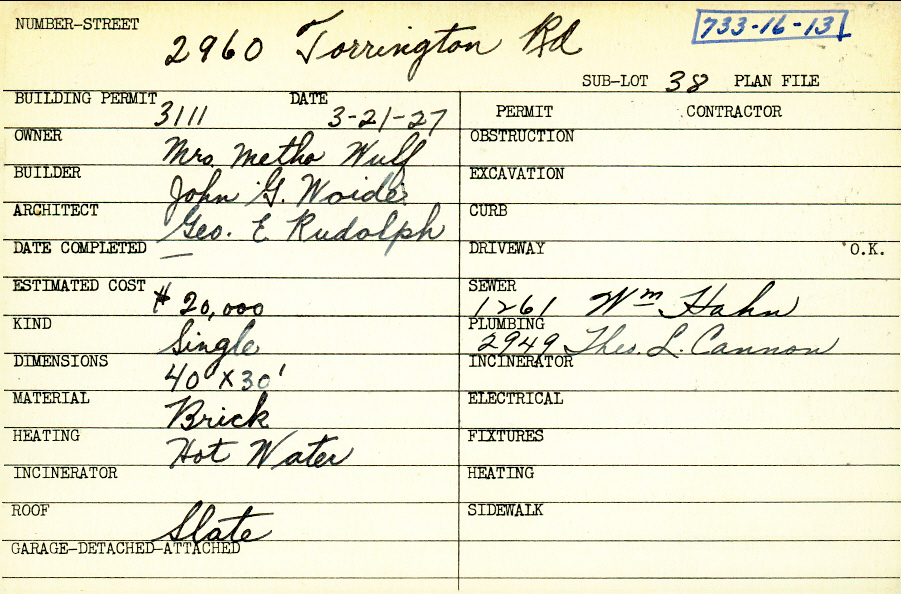 NUMBER-STREET 2960 Torrington Rd 733-16-13
SUB-LOT 38 PLAN FILE
BUILDING PERMIT 3111 DATE 3-21-27
PERMIT CONTRACTOR
OWNER Mrs. Metha Wulf
OBSTRUCTION
BUILDER John G. Woide
EXCAVATION
ARCHITECT Geo. E Rudolph
CURB
DATE COMPLETED —
DRIVEWAY O.K.
ESTIMATED COST $ 20,000
SEWER 1261 Wm Hahn
KIND Single
PLUMBING 2949 Theo. L. Cannon
DIMENSIONS 40' X 30'
INCINERATOR
MATERIAL Brick
ELECTRICAL
HEATING Hot Water
FIXTURES
INCINERATOR
HEATING
ROOF Slate
SIDEWALK
GARAGE-DETACHED-ATTACHED